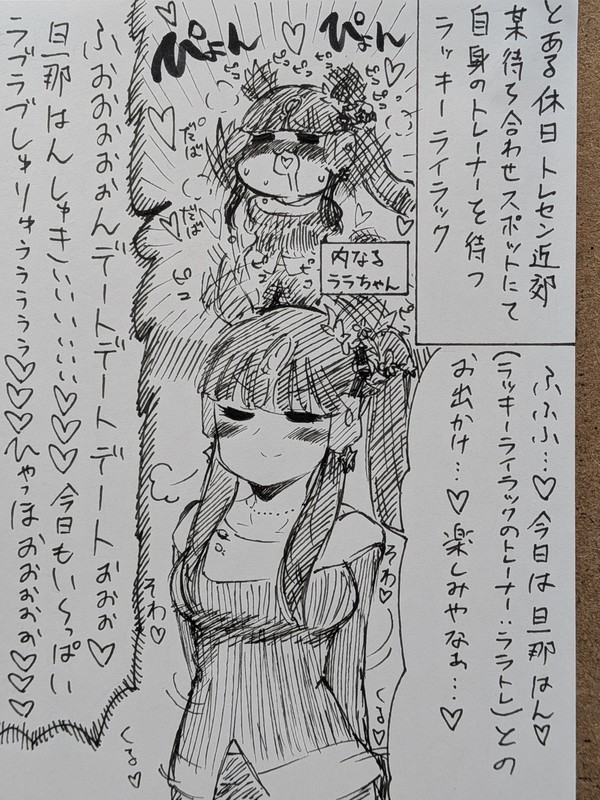 とある休日トレセン近郊
某待ち合わせスポットにて
自身のトレーナーを待つ
ラッキーライラック
ふふふ…♡今日は旦那はん♡
(ラッキーライラックのトレーナー:ララトレ)との
お出かけ…♡楽しみやなぁ…♡
ぴょん
ぴょん
ピコ
ピコ
ピコ
ピコ
だぱ°
だぱ
内なる
ララちゃん
ピコ
ピコ
そわ♡
そわ♡
くる♡
くる♡
ふおおおおおんデートデートデートおぉぉ♡
旦那はんしゅきいいいいい♡♡♡今日もい〜っぱい
ラブラブしゅりゅうううううぅ♡♡♡ひゃっほおぉぉぉぉ♡♡♡